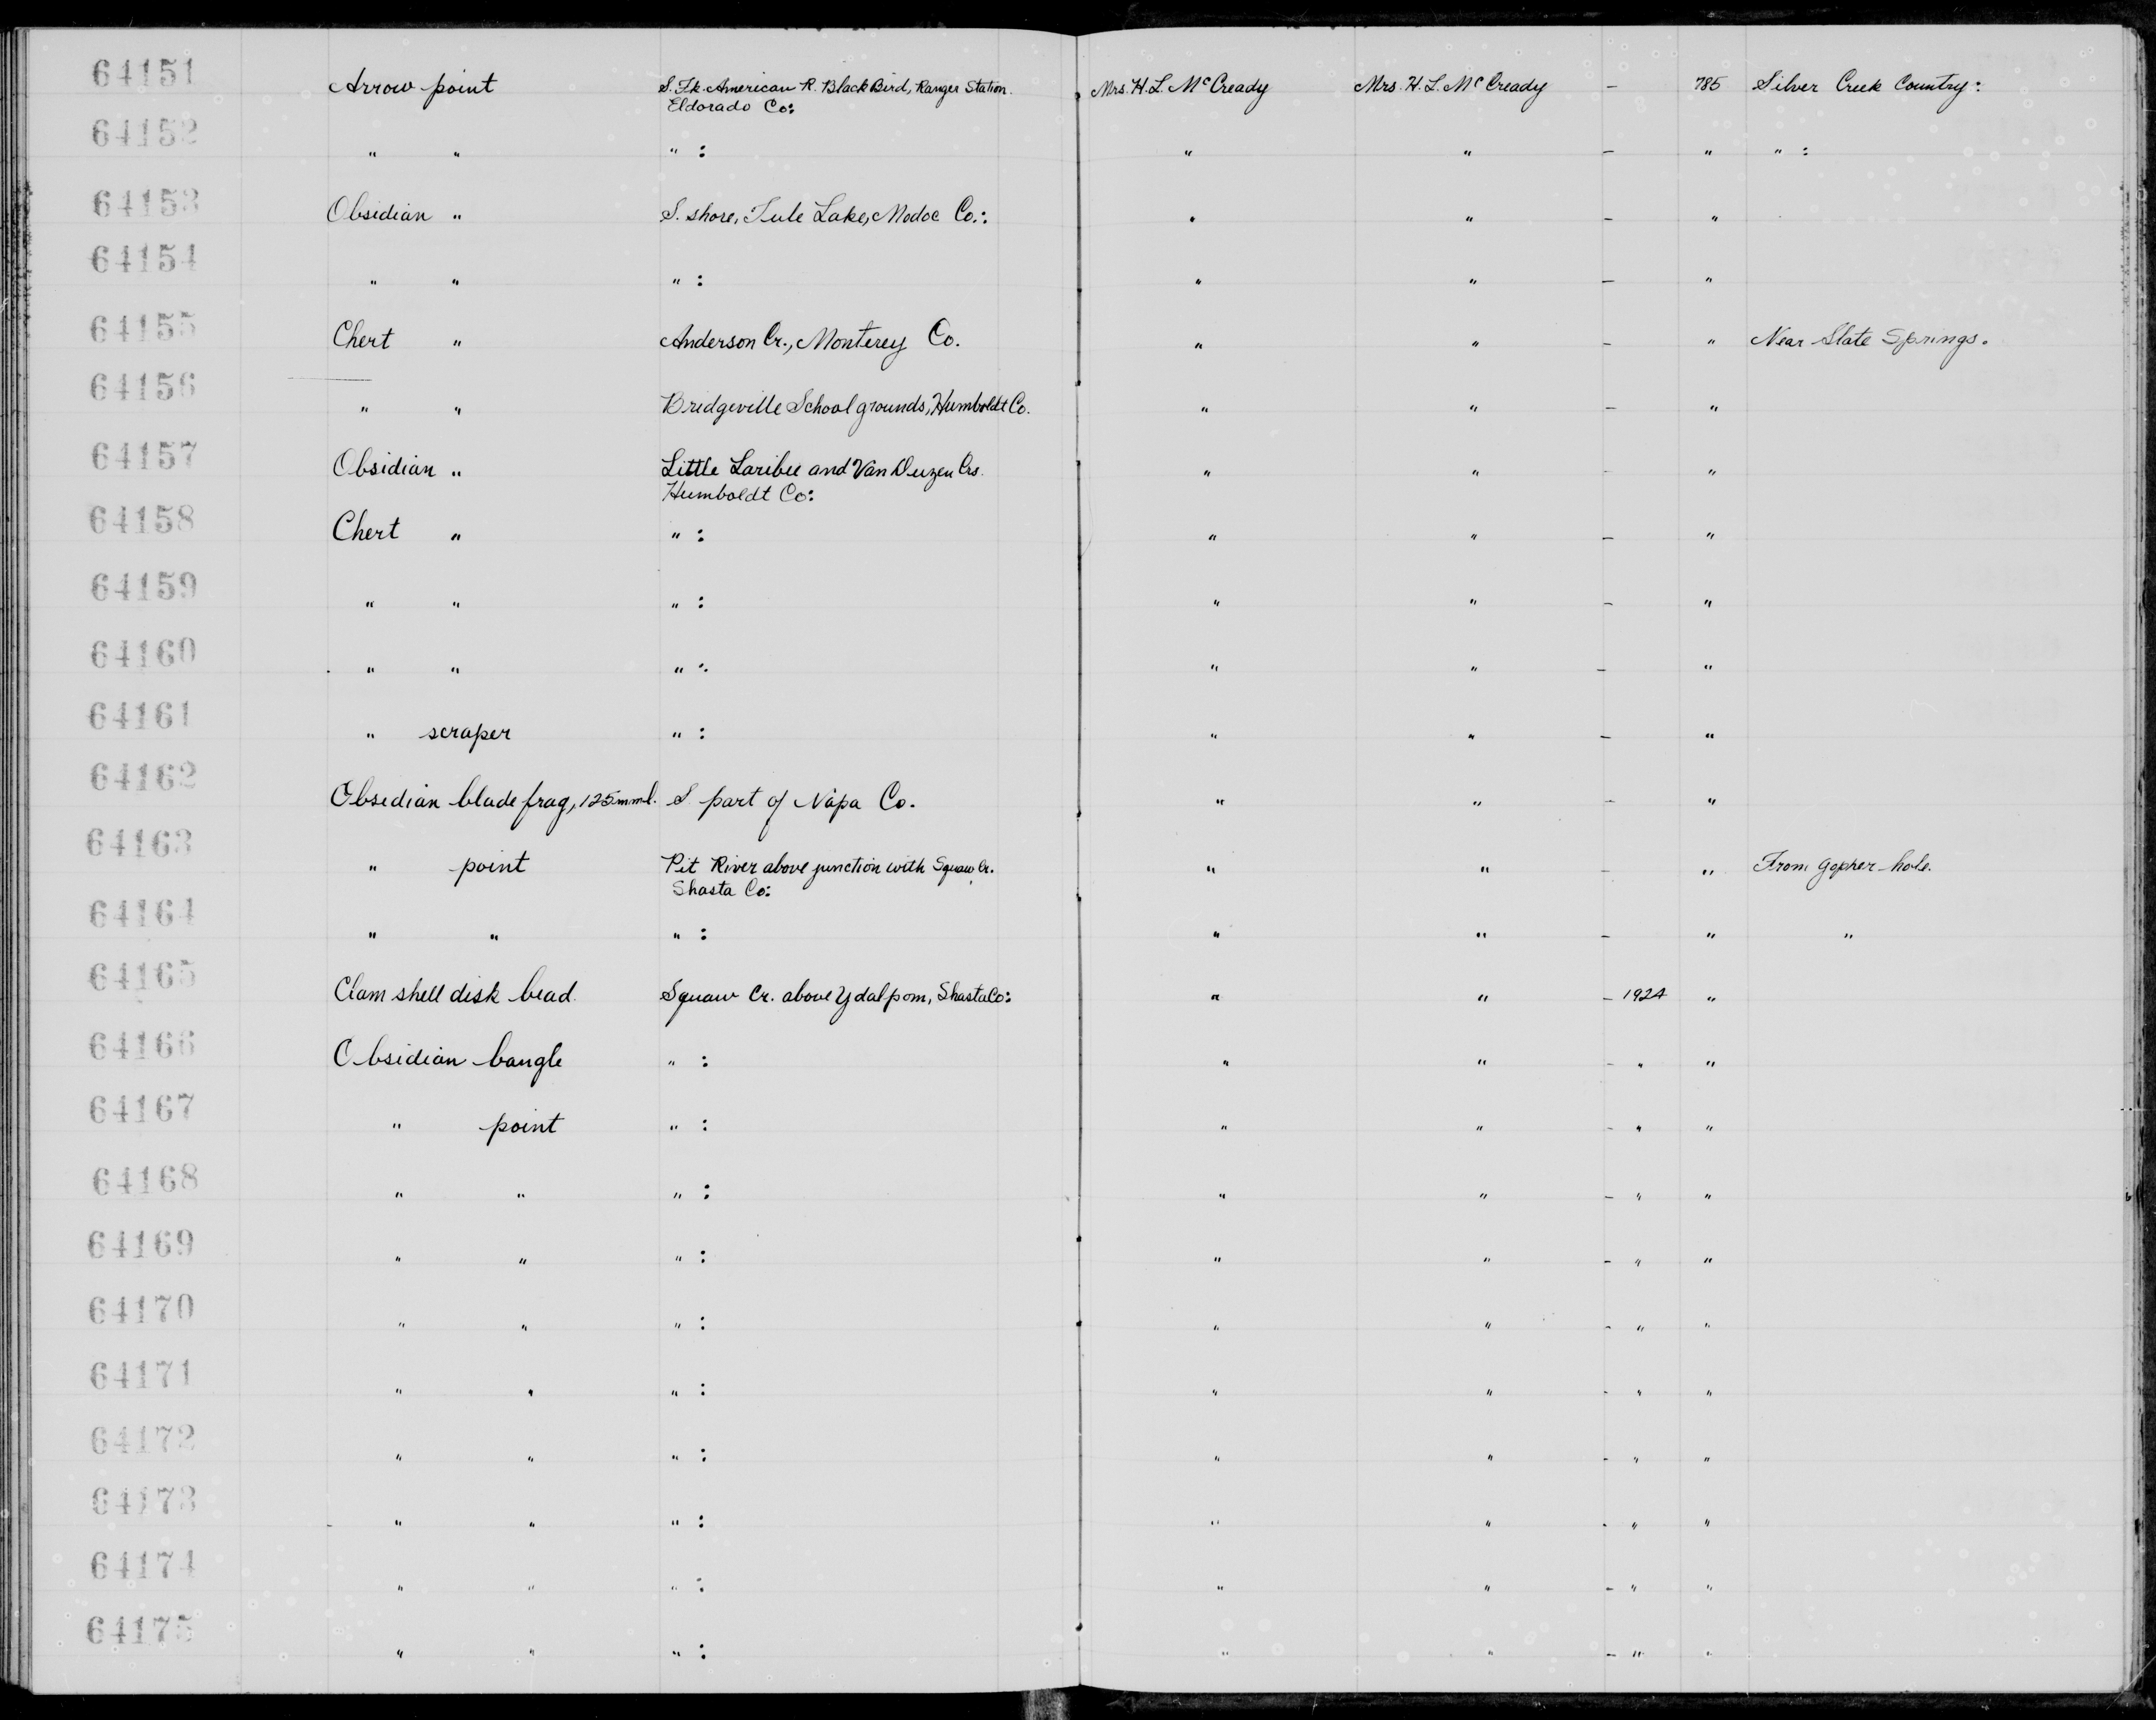 64151 Arrow point S. Fk. American R. Black Bird, Ranger Station. Mrs. H. L. McCready Mrs. H. L. McCready – 785 Silver Creek Country:
Eldorado Co:
64152 " " " : " " – " " :
64153 Obsidian " S. shore, Tule Lake, Modoc Co.: " " – "
64154 " " " : " " – "
64155 Chert " Anderson Cr., Monterey Co. " " – " Near Slate Springs.
64156 " " Bridgeville School grounds, Humboldt Co. " " – "
64157 Obsidian " Little Laribee and Van Duzen Crs. " " – "
Humboldt Co:
64158 Chert " " : " " – "
64159 " " " : " " – "
64160 " " " : " " – "
64161 " scraper " : " " – "
64162 Obsidian blade frag, 125mm l. S. part of Napa Co. " " – "
64163 " point Pit River above junction with Squaw Cr. " " – " From gopher-hole.
Shasta Co:
64164 " " " : " " – " "
64165 Clam shell disk bead. Squaw Cr. above Ydalpom, Shasta Co: " " – 1924 "
64166 Obsidian bangle " : " " – " "
64167 " point " : " " – " "
64168 " " " : " " – " "
64169 " " " : " " – " "
64170 " " " : " " – " "
64171 " " " : " " – " "
64172 " " " : " " – " "
64173 " " " : " " – " "
64174 " " " : " " – " "
64175 " " " : " " – " "